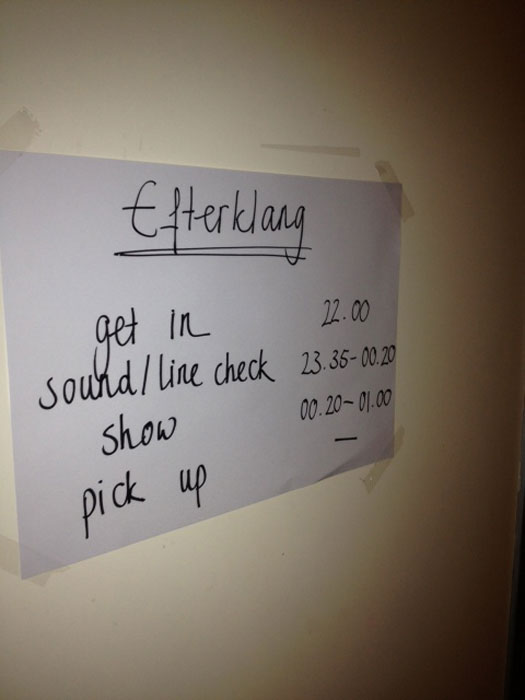 Efterklang
get in 22.00
sound/line check 23.35-00.20
show 00.20-01.00
pick up —